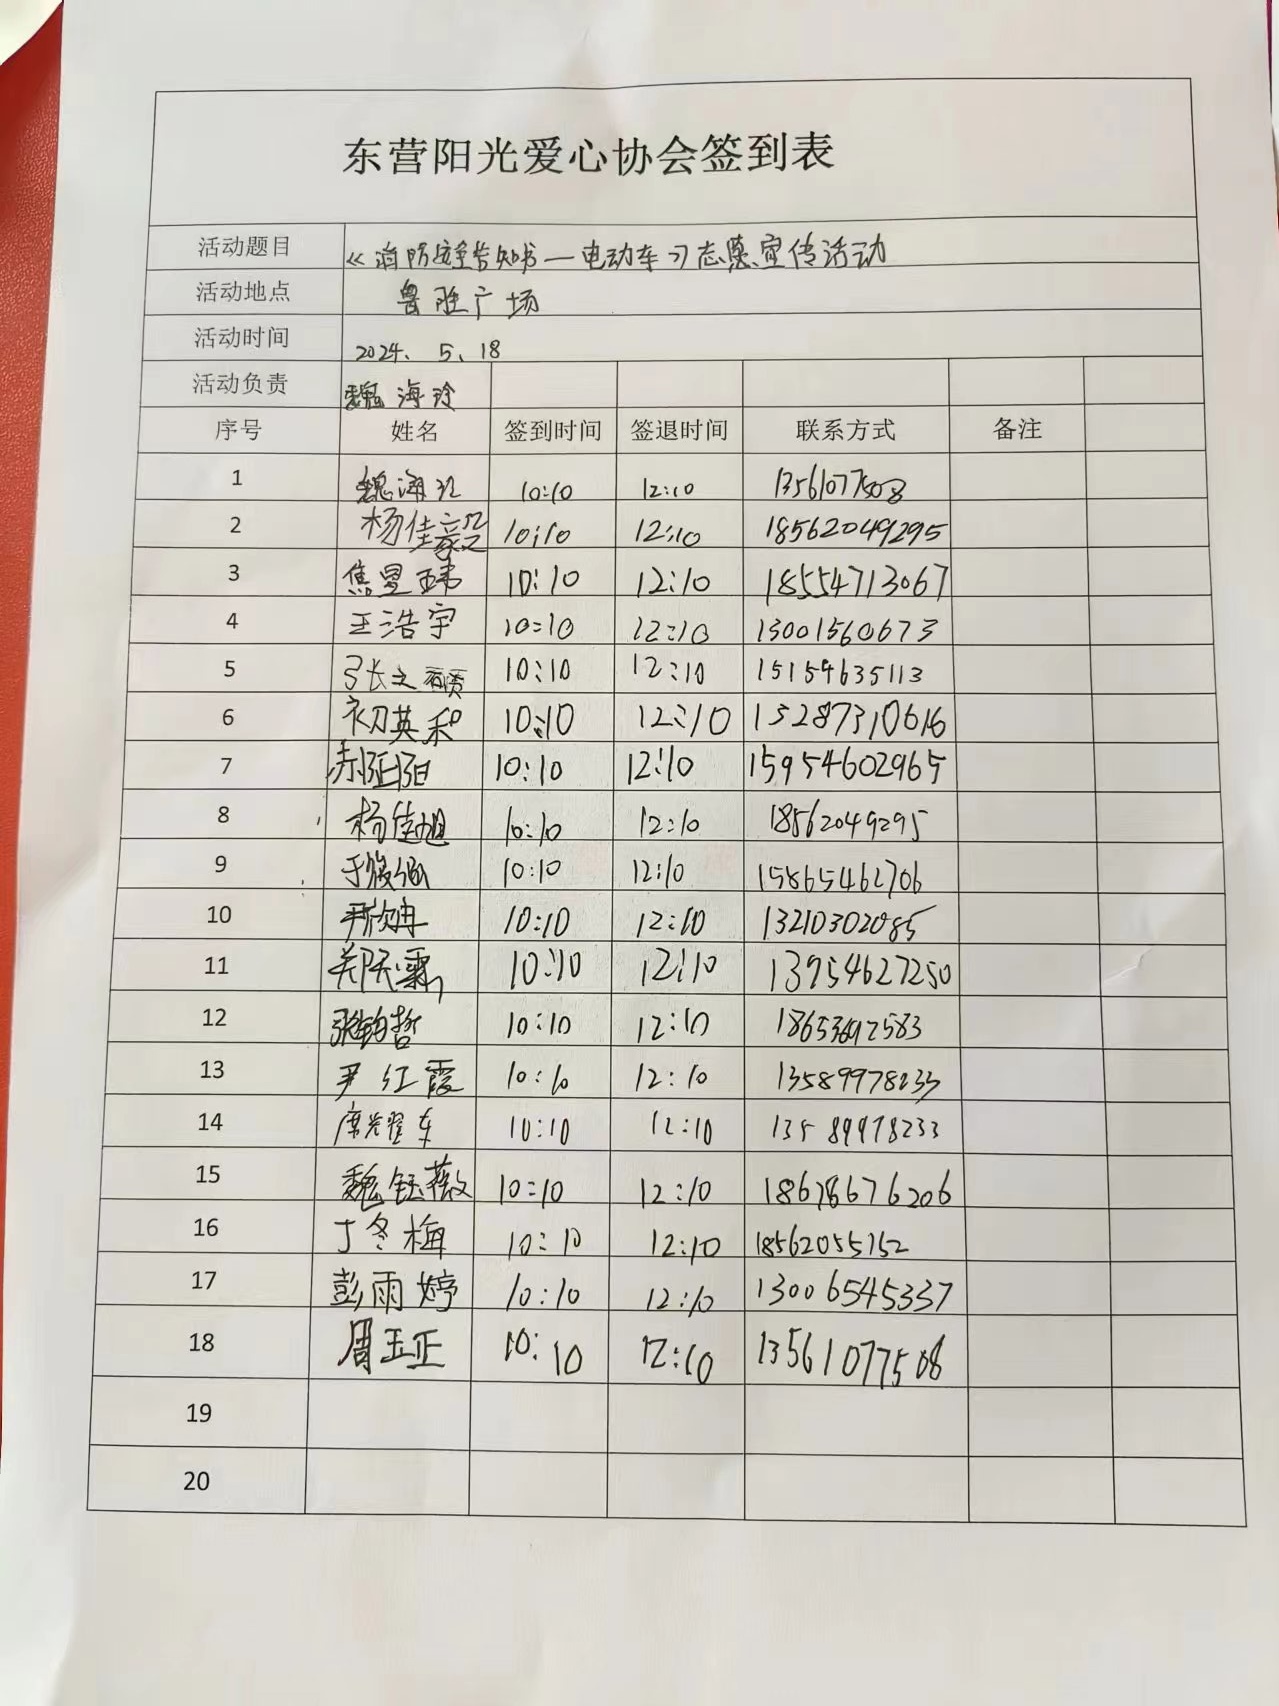 东营阳光爱心协会签到表
活动题目 《消防安全告知书—电动车》志愿宣传活动
活动地点 鲁胜广场
活动时间 2024、5、18
活动负责 魏海玲
序号 姓名 签到时间 签退时间 联系方式 备注
1 魏海玲 10:10 12:10 13561077508
2 杨佳毅 10:10 12:10 18562049295
3 焦昱玮 10:10 12:10 18554713067
4 王浩宇 10:10 12:10 13001560673
5 张之 10:10 12:10 15154635113
6 初英和 10:10 12:10 15287310616
7 10:10 12:10 15954602965
8 杨佳旭 10:10 12:10 18562049295
9 于 10:10 12:10 15865462706
10 尹欣冉 10:10 12:10 13210302085
11 郑天 10:10 12:10 13954627250
12 张钧哲 10:10 12:10
13 尹红霞 10:10 12:10
14 席光耀东 10:10 12:10 13589978233
15 魏钰薇 10:10 12:10 18678676206
16 丁冬梅 10:10 12:10 18562055752
17 彭雨婷 10:10 12:10 13006545337
18 周玉正 10:10 12:10 13561077508
19
20